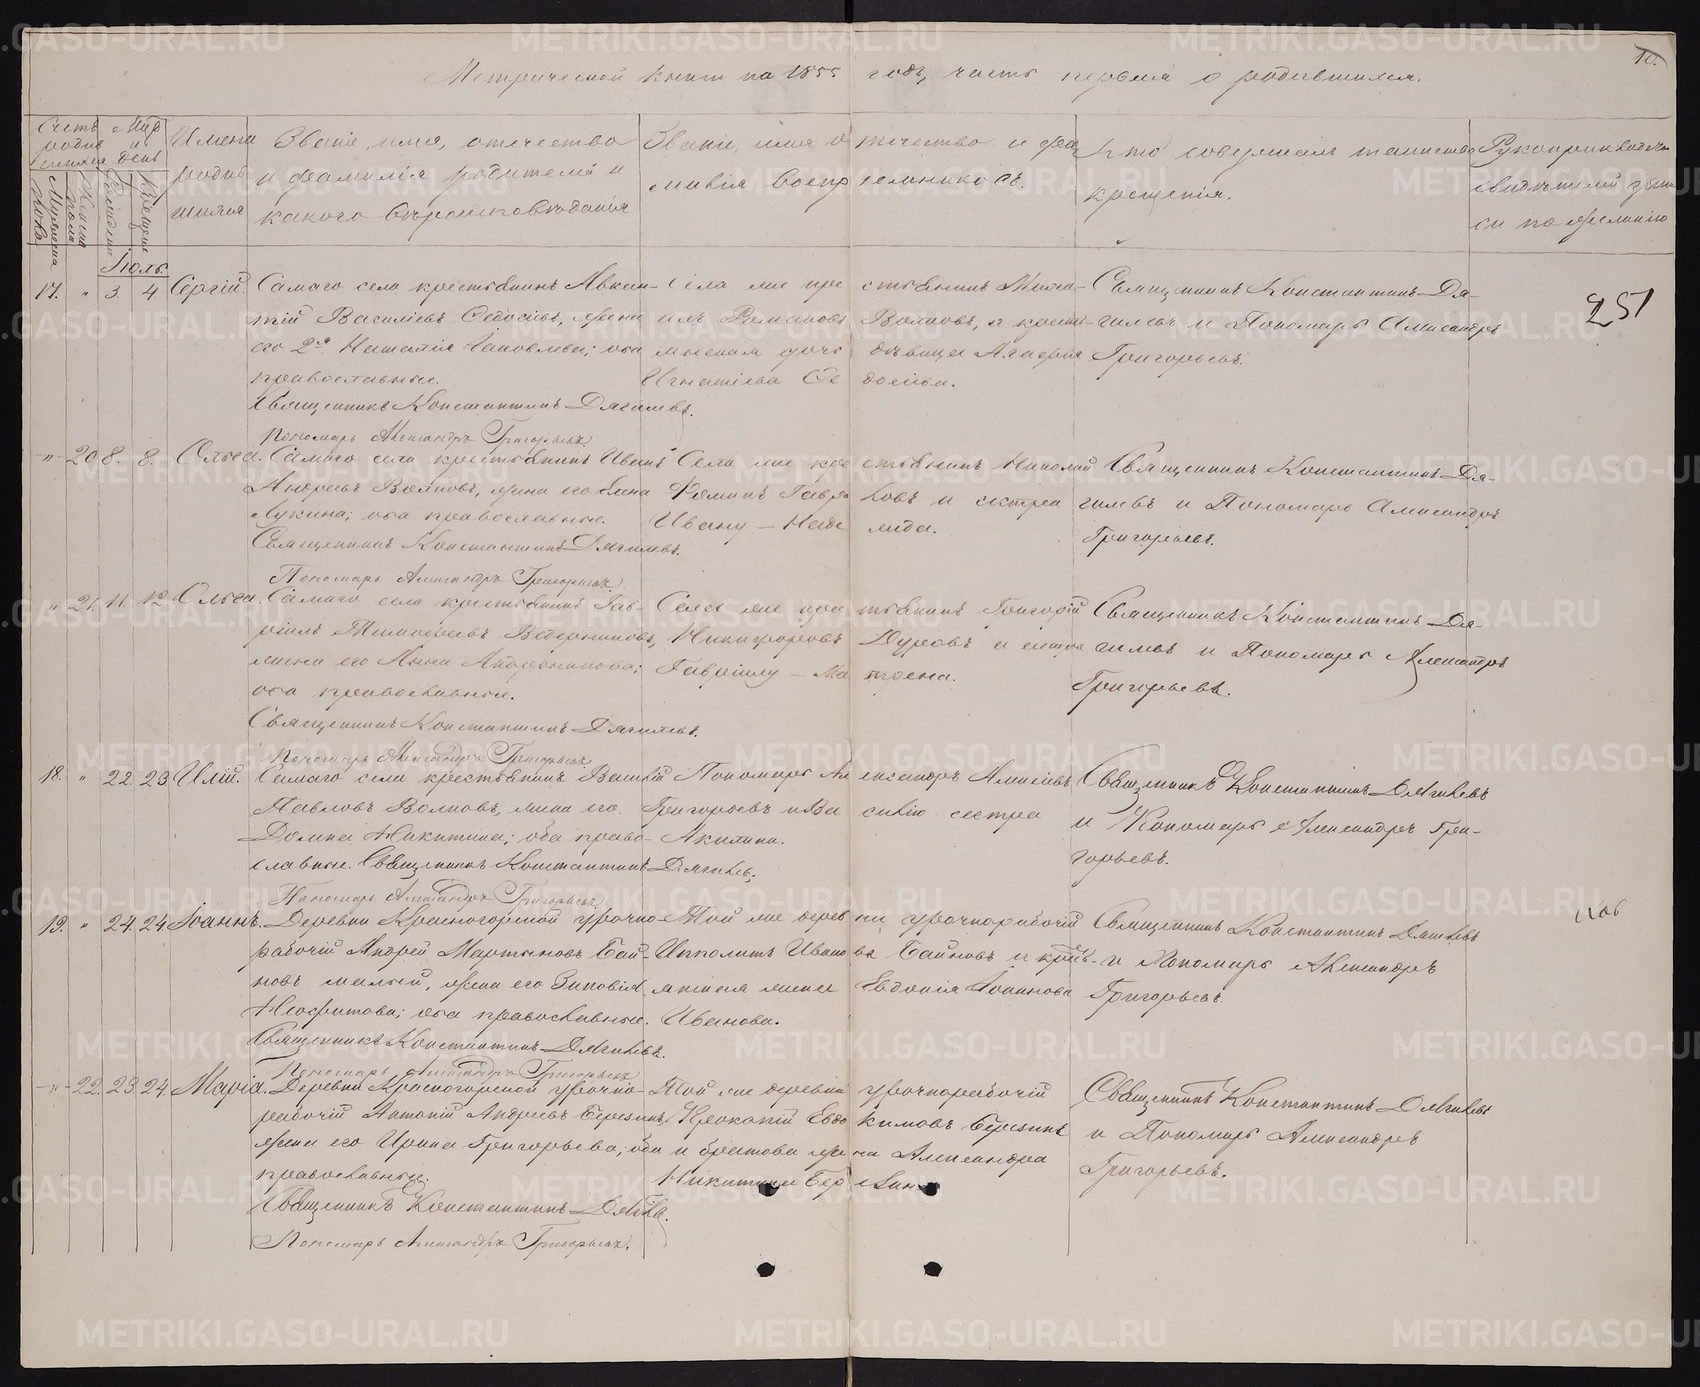 10.
Метрической книги на 1855 годъ, часть первая о родившихся.
Счетъ родившихся
Мужеска пола
Женска пола
Мѣс. и день
Рожденія
Крещенія
Имена родившихся
Званіе, имя, отечество и фамилія родителей и какого вѣроисповѣданія
Званіе, имя отечество и фамилія воспріемниковъ.
Кто совершалъ таинство крещенія.
Рукоприкладство свидѣтелей записи по желанію
Іюль.
17. " 3 4 Сергій.
Самаго села крестьянинъ Авксен-
тій Василіевъ Ѳедосѣевъ, жена
его 2я Наталія Іаковлева; оба
православные.
Священникъ Константинъ Дягилевъ.
Пономарь Александръ Григорьевъ.
Села же крестьянинъ Миха-
илъ Романовъ Волковъ, и кресть-
янская дочь дѣвица Агафія
Игнатіева Ѳедосѣева.
Священникъ Константинъ Дя-
гилевъ и Пономарь Александръ
Григорьевъ.
251
" 20 8. 8. Ольга.
Самаго села крестьянинъ Иванъ
Андреевъ Волковъ, жена его Елена
Лукина; оба православные.
Священникъ Константинъ Дягилевъ.
Пономарь Александръ Григорьевъ.
Села же крестьянинъ Николай
Ѳоминъ и сестра
Ивану –
Священникъ Константинъ Дя-
гилевъ и Пономарь Александръ
Григорьевъ.
" 21. 11. 12 Ольга.
Самаго села крестьянинъ Гав-
ріилъ Тимоѳеевъ Ведерниковъ,
жена его Анна Андроникова;
оба православные.
Священникъ Константинъ Дягилевъ.
Пономарь Александръ Григорьевъ.
Села же крестьянинъ Григорій
Никифоровъ Дуровъ и сестра
Гавріилу – Матрена.
Священникъ Константинъ Дя-
гилевъ и Пономарь Александръ
Григорьевъ.
18. " 22. 23 Илій.
Самаго села крестьянинъ Василій
Павловъ Волковъ, жена его
Домна Никитина; оба право-
славные. Священникъ Константинъ Дягилевъ,
Пономарь Александръ Григорьевъ.
Пономарь Александръ Алексѣевъ
Григорьевъ и Василію сестра
Акилина.
Священникъ Константинъ Дягилевъ
и Пономарь Александръ Гри-
горьевъ.
19. " 24. 24 Іоаннъ.
Деревни Красногорской урочно-
рабочій Андрей Мартыновъ Бай-
новъ малый, жена его Зиновія
Неофитова; оба православные.
Священникъ Константинъ Дягилевъ.
Пономарь Александръ Григорьевъ.
Той же деревни урочнорабочій
Ипполитъ Ивановъ Байновъ и кресть-
янская жена Евдокія
Иванова.
Священникъ Константинъ Дягилевъ
и Пономарь Александръ
Григорьевъ.
" 22. 23. 24. Марія.
Деревни Красногорской урочно-
рабочій Антоній Андреевъ Березинъ,
жена его Ирина Григорьева; оба
православные.
Священникъ Константинъ Дягилевъ.
Пономарь Александръ Григорьевъ.
Той же деревни урочнорабочій
Евдокимовъ Березинъ
и братова жена Александра
Никитина Березина
Священникъ Константинъ Дягилевъ
и Пономарь Александръ
Григорьевъ.
METRIKI.GASO-URAL.RU